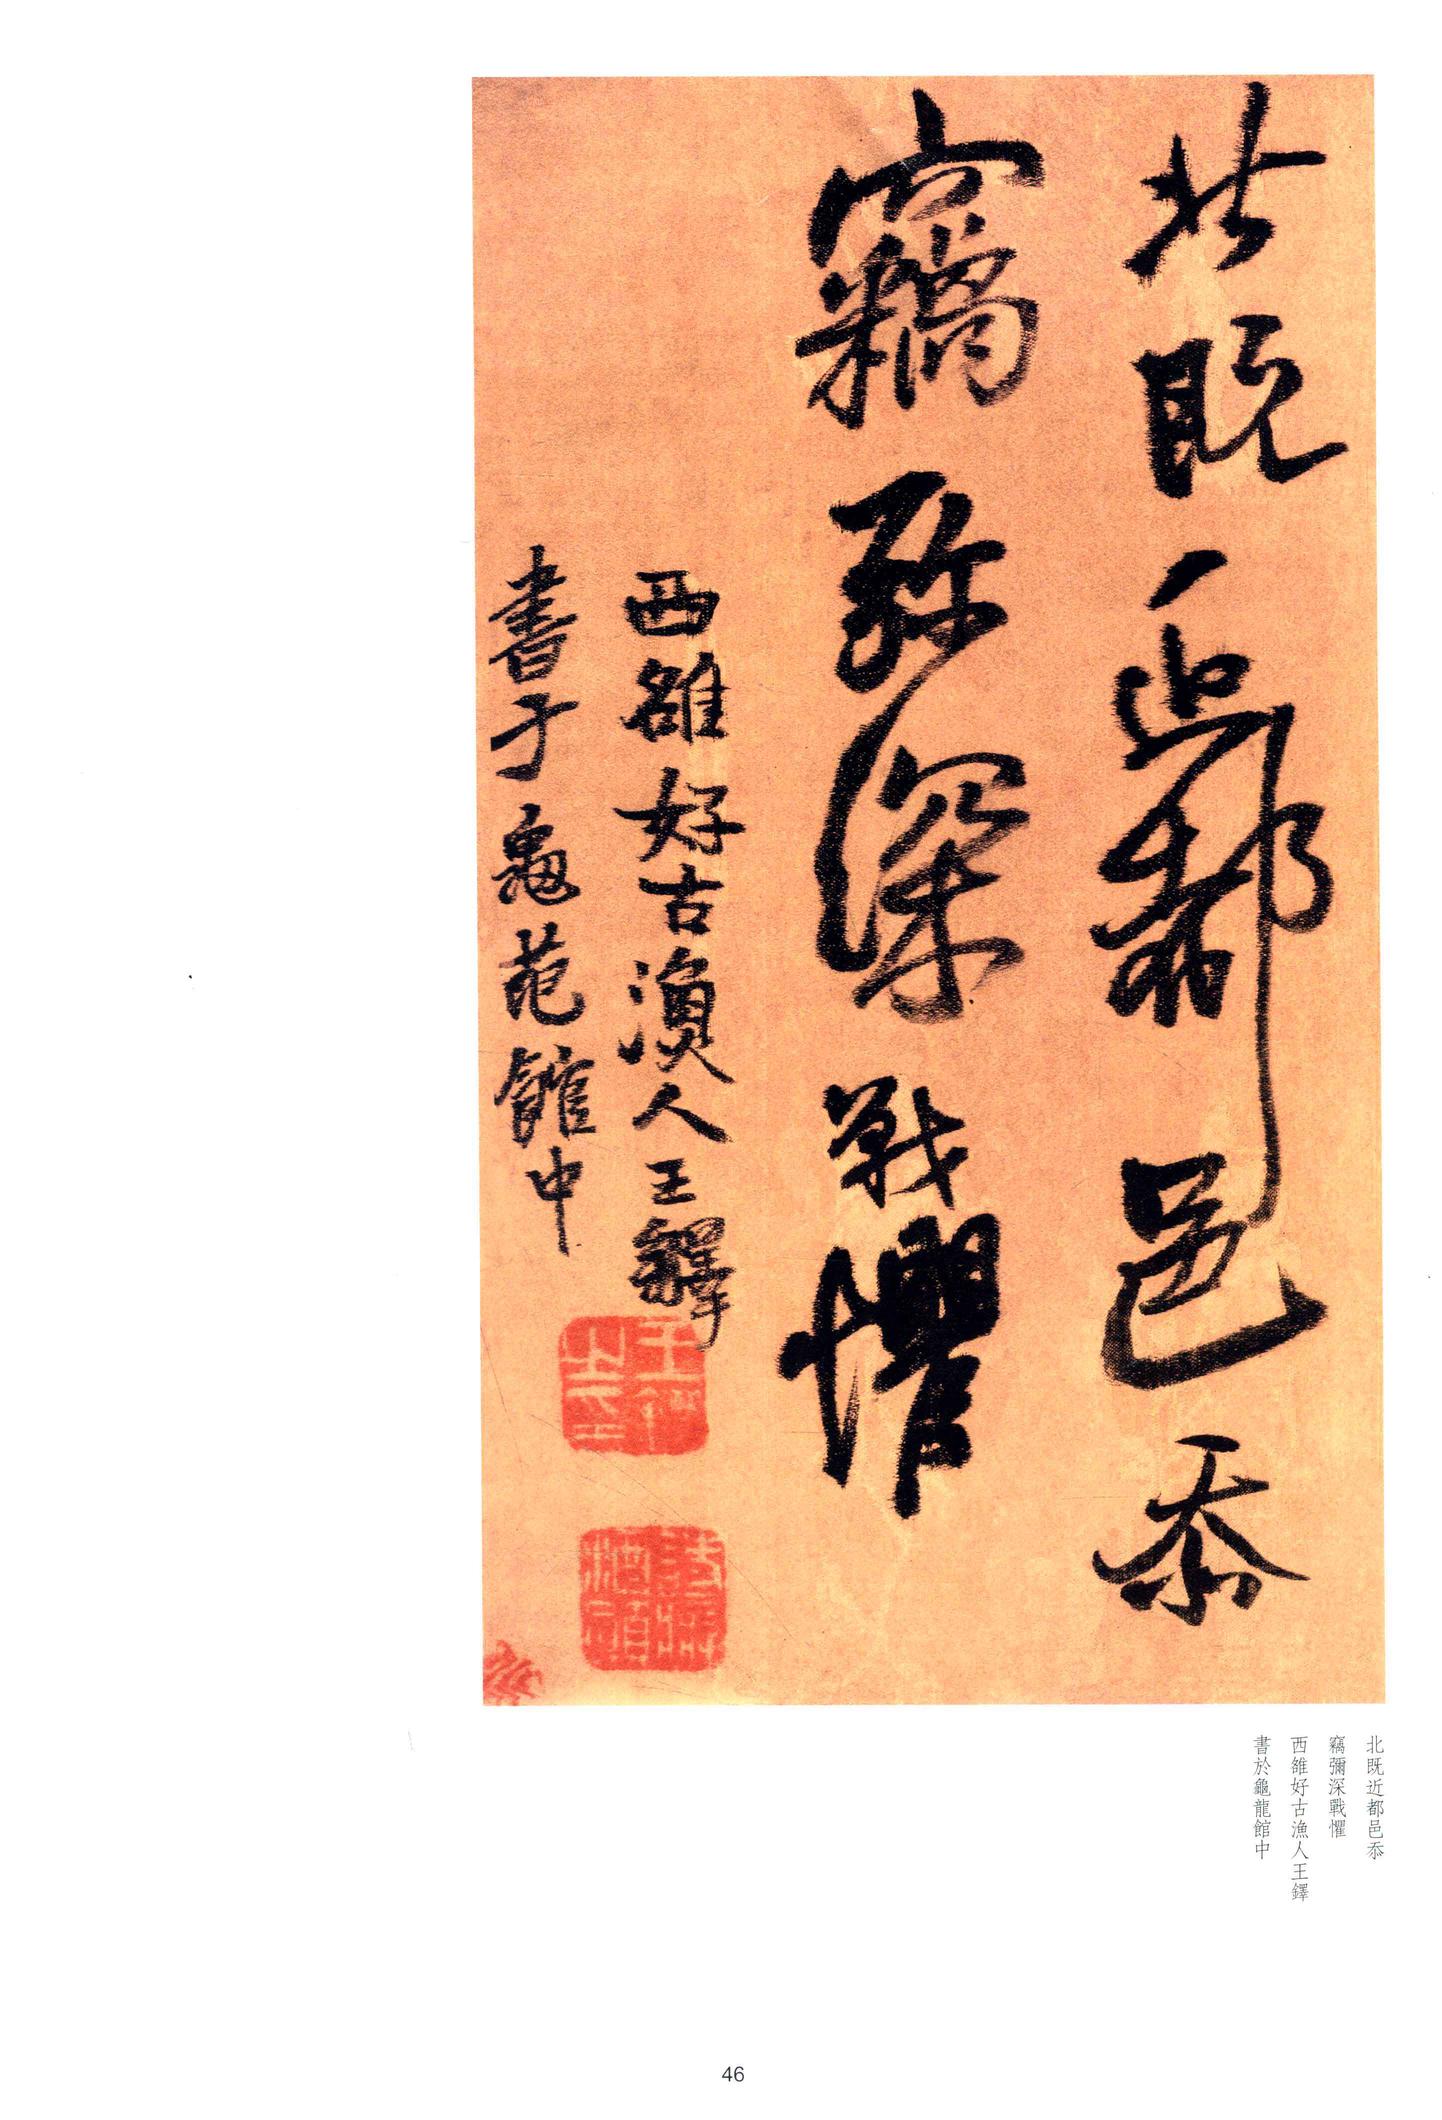 北既近都邑忝
竊彌深戰懼
西雒好古漁人王鐸
書于龜龍館中
北既近都邑忝
竊彌深戰懼
西雒好古漁人王鐸
書於龜龍館中
46